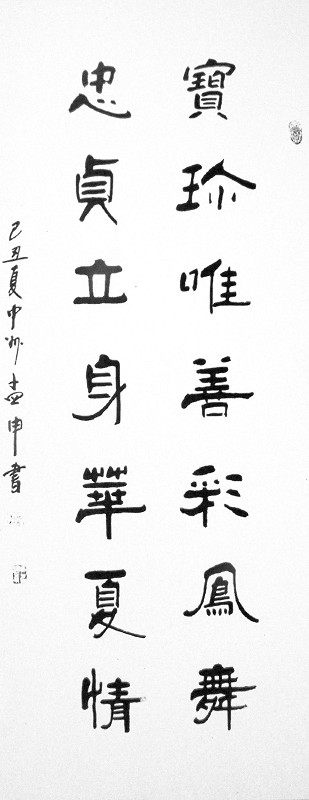 寶珍唯善彩鳳舞
忠貞立身華夏情
己丑夏中州孟申書